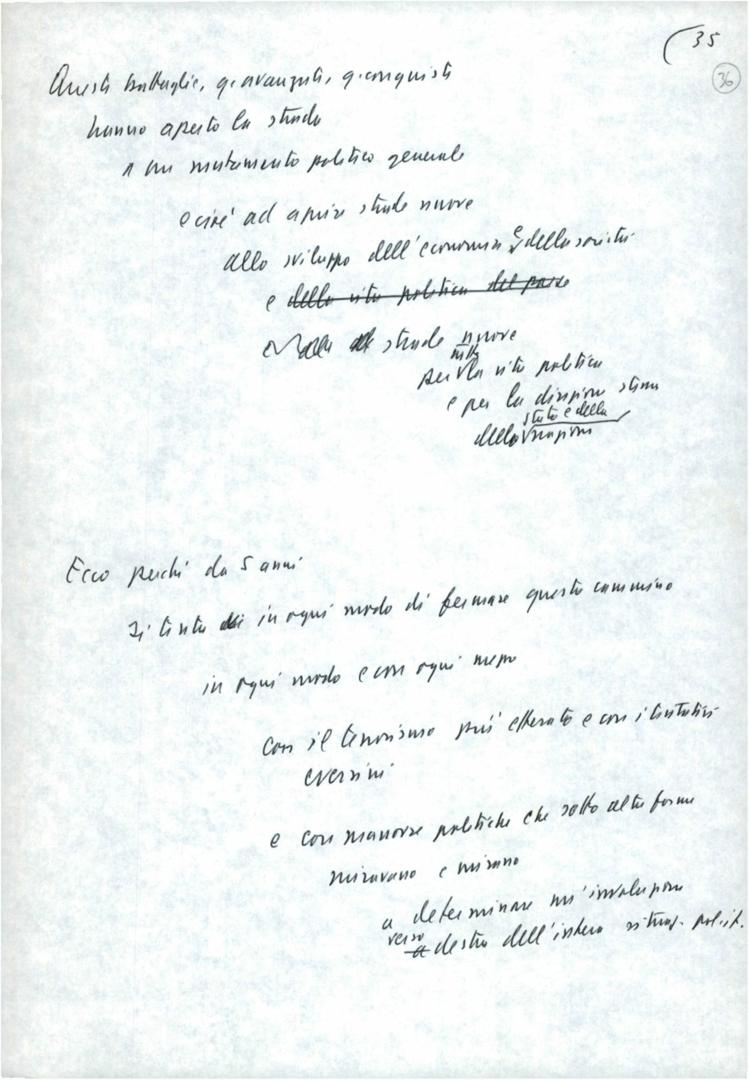 35
36
Queste battaglie, q. avanzate, q. conquiste
hanno aperto la strada
a un mutamento politico generale
e cioè ad aprire strade nuove
allo sviluppo dell'economia e della società
e della vita politica del paese
strade nuove
nella
per la vita politica
e per la direzione stessa
stato e della
della nazione
Ecco perché da 5 anni
si tenta di in ogni modo di fermare questo cammino
in ogni modo e con ogni mezzo
con il terrorismo più efferato e con i tentativi
eversivi
e con manovre politiche che sotto altre forme
miravano e mirano
a determinare un'involuzione
verso
a destra dell'intera situaz. polit.